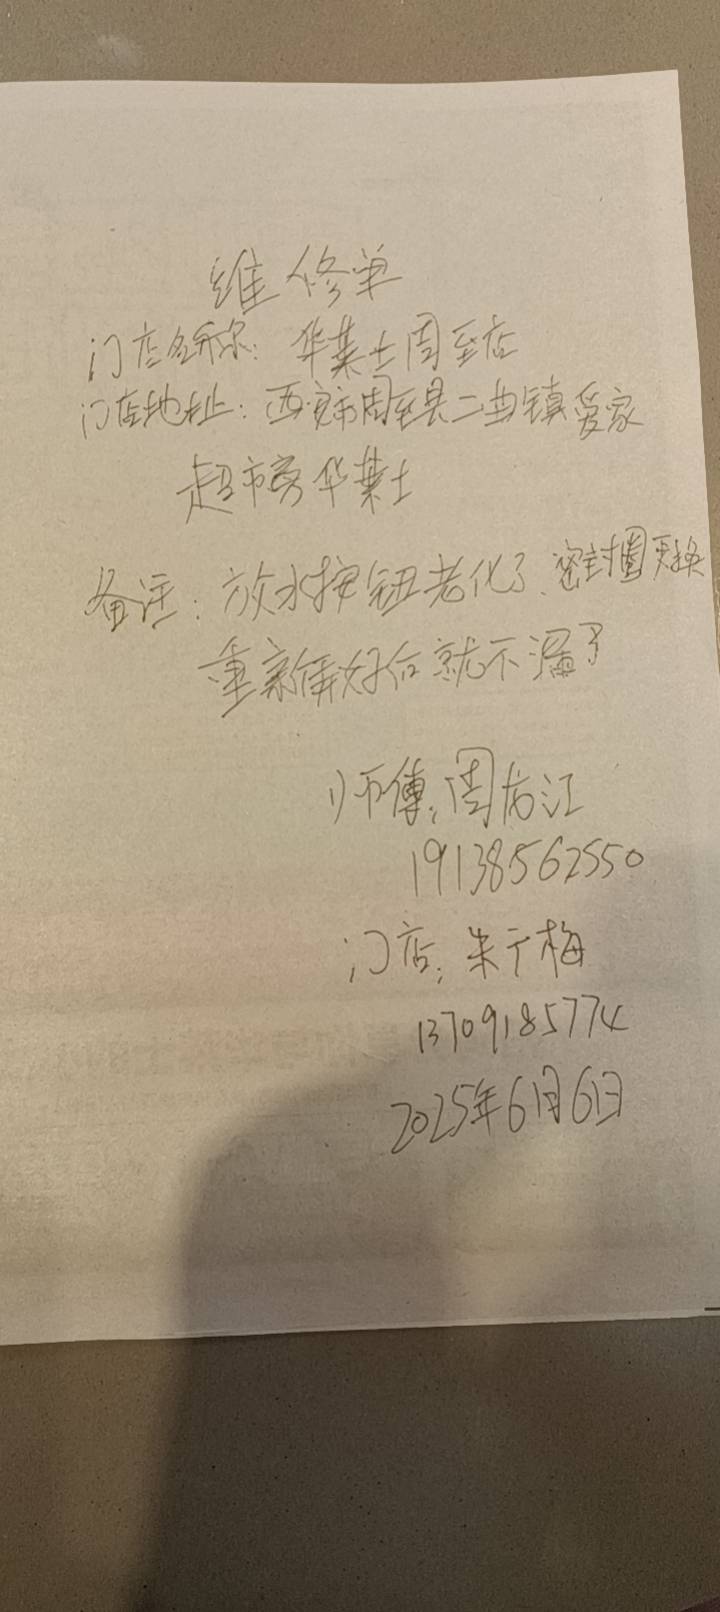 维修单
门店名称: 华莱士周至店
门店地址: 西安市周至县二曲镇爱家
超市旁华莱士
备注: 放水按钮老化了、密封圈更换
重新弄好后就不漏了
师傅: 周龙江
19138562550
门店: 朱宁梅
13709185774
2025年6月6日